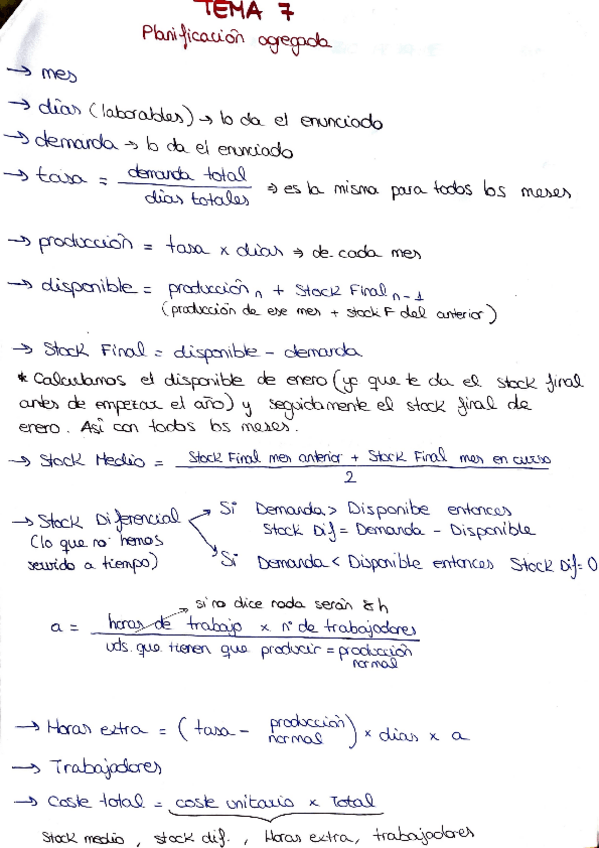 TEMA 7
Planificación agregada
→ mes
→ días (laborables) → lo da el enunciado
→ demanda → lo da el enunciado
→ tasa = demanda total / días totales ⇒ es la misma para todos los meses
→ producción = tasa × días ⇒ de cada mes
→ disponible = producción n + Stock Final n-1
(producción de ese mes + stock F del anterior)
→ Stock Final = disponible - demanda
* Calculamos el disponible de enero (ya que te da el stock final
antes de empezar el año) y seguidamente el stock final de
enero. Así con todos los meses.
→ Stock Medio = Stock Final mes anterior + Stock Final mes en curso / 2
→ Stock Diferencial
(lo que no hemos
servido a tiempo)
Si Demanda > Disponibe entonces
Stock Dif = Demanda - Disponible
Si Demanda < Disponible entonces Stock Dif = 0
→ si no dice nada serán 8h
a = horas de trabajo × nº de trabajadores / uds. que tienen que producir = producción normal
→ Horas extra = (tasa - producción normal) × días × a
→ Trabajadores
→ Coste total = coste unitario × Total
Stock medio, stock dif., Horas extra, trabajadores